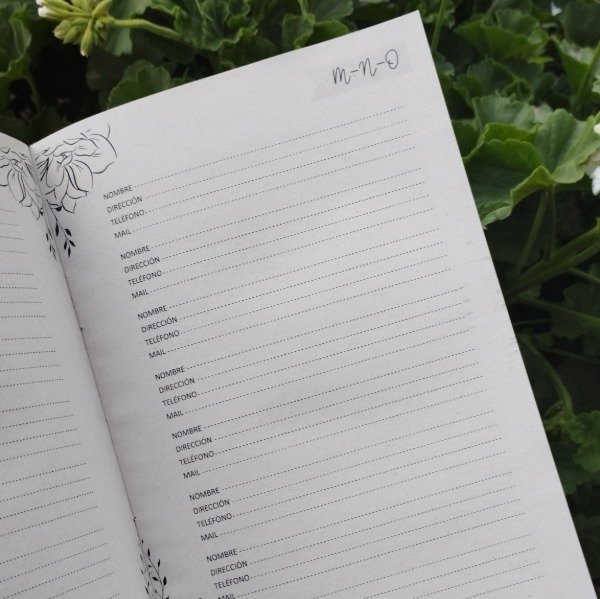 M-N-O
NOMBRE
DIRECCIÓN
TELÉFONO
MAIL
NOMBRE
DIRECCIÓN
TELÉFONO
MAIL
NOMBRE
DIRECCIÓN
TELÉFONO
MAIL
NOMBRE
DIRECCIÓN
TELÉFONO
MAIL
NOMBRE
DIRECCIÓN
TELÉFONO
MAIL
NOMBRE
DIRECCIÓN
TELÉFONO
MAIL
NOMBRE
DIRECCIÓN
TELÉFONO
MAIL